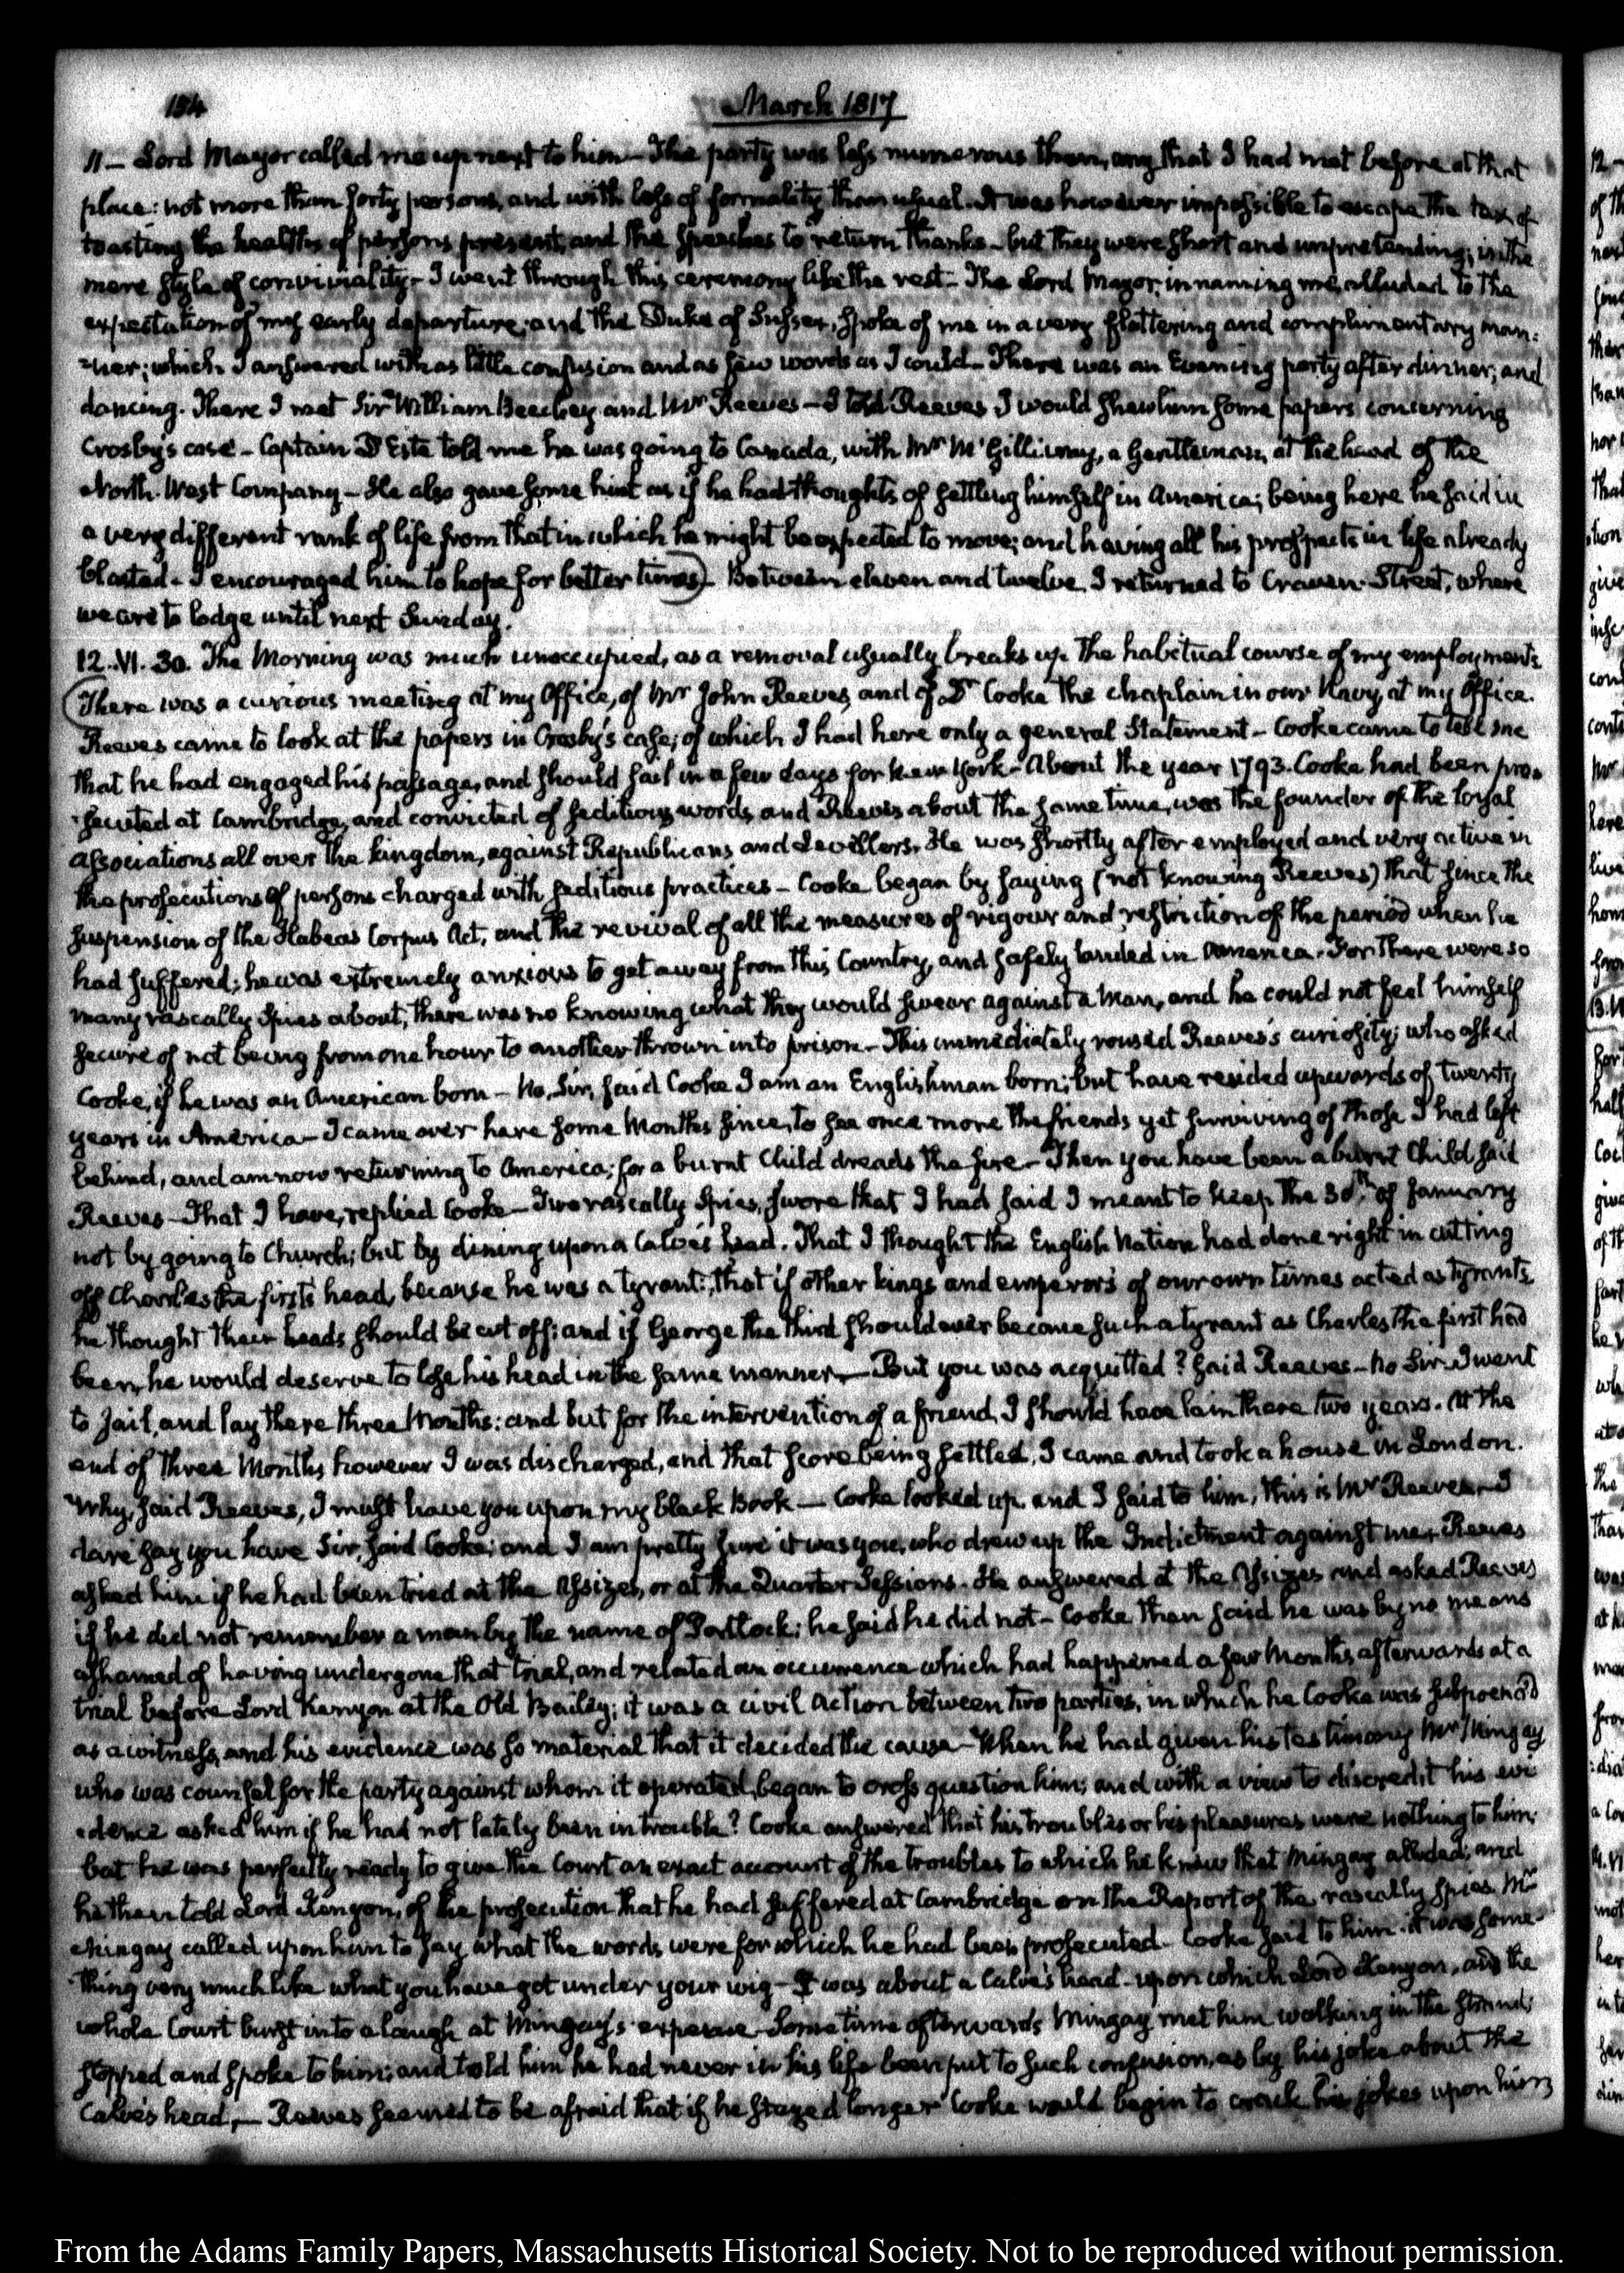 154
March 1817
11 — Lord Mayor called me up next to him — The party was less numerous than, any that I had met before at that
place: not more than forty persons, and with less of formality than usual. It was however impossible to escape the tax of
toasting the healths of persons present, and the speeches to return thanks — but they were short and unpretending; in the
mere style of conviviality — I went through this ceremony like the rest — The Lord Mayor, in naming me, alluded to the
expectation of my early departure; and the Duke of Sussex, spoke of me in a very flattering and complimentary man-
-ner; which I answered with as little confusion and as few words as I could — There was an Evening party after dinner; and
dancing. There I met Sir William Beechey and Mr Reeves — I told Reeves I would shew him some papers concerning
Crosby's case — Captain D'Este told me he was going to Canada, with Mr McGillivray, a Gentleman, at the head of the
North-West Company — He also gave some hint as if he had thoughts of settling himself in America; being here he said in
a very different rank of life from that in which he might be expected to move; and having all his prospects in life already
blasted — I encouraged him to hope for better times) — Between eleven and twelve I returned to Craven-Street, where
we are to lodge until next Sunday.
12. VI. 30. The Morning was much unoccupied, as a removal usually breaks up the habitual course of my employments
(There was a curious meeting at my Office, of Mr John Reeves, and of Dr Cooke the chaplain in our Navy, at my Office.
Reeves came to look at the papers in Crosby's case; of which I had here only a general Statement — Cooke came to tell me
that he had engaged his passage, and should sail in a few days for New York — About the year 1793. Cooke had been pro-
-secuted at Cambridge, and convicted of seditious words, and Reeves about the same time, was the founder of the loyal
associations all over the kingdom, against Republicans and Levellers. He was shortly after employed and very active in
the prosecutions of persons charged with seditious practices — Cooke began by saying (not knowing Reeves) that since the
suspension of the Habeas Corpus Act, and the revival of all the measures of rigour and restriction of the period when he
had suffered; he was extremely anxious to get away from this Country, and safely landed in America. For there were so
many rascally spies about, there was no knowing what they would swear against a Man, and he could not feel himself
secure of not being from one hour to another thrown into prison — This immediately roused Reeves's curiosity; who asked
Cooke, if he was an American born — No, Sir, said Cooke I am an Englishman born; but have resided upwards of twenty
years in America — I came over here some Months since, to see once more the friends yet surviving of those I had left
behind, and am now returning to America; for a burnt Child dreads the fire — Then you have been a burnt Child said
Reeves — That I have, replied Cooke — Two rascally Spies, swore that I had said I meant to keep the 30th of January
not by going to Church; but by dining upon a Calve's head. That I thought the English Nation had done right in cutting
off Charles the first's head, because he was a tyrant: that if other kings and emperors of our own times acted as tyrants
he thought their heads should be cut off: and if George the third should ever become such a tyrant as Charles the first had
been, he would deserve to lose his head in the same manner — But you was acquitted? said Reeves — No Sir — I went
to Jail, and lay there three Months: and but for the intervention of a friend, I should have lain there two years. At the
end of three Months however I was discharged, and that score being settled, I came and took a house in London.
Why, said Reeves, I must have you upon my Black Book — Cooke looked up, and I said to him, this is Mr Reeves — I
dare say you have Sir, said Cooke; and I am pretty sure it was you, who drew up the Indictment against me. Reeves
asked him if he had been tried at the Assizes, or at the Quarter Sessions. He answered at the Assizes and asked Reeves
if he did not remember a man by the name of Portlock; he said he did not — Cooke then said he was by no means
ashamed of having undergone that trial, and related an occurrence which had happened a few Months afterwards at a
trial before Lord Kenyon at the Old Bailey; it was a civil action between two parties, in which he Cooke was subpoena'd
as a witness, and his evidence was so material that it decided the cause — When he had given his testimony Mr Mingay
who was counsel for the party against whom it operated, began to cross question him; and with a view to discredit his evi
-dence asked him if he had not lately been in trouble? Cooke answered that his troubles or his pleasures were nothing to him;
but he was perfectly ready to give the Court an exact account of the troubles to which he knew that Mingay alluded; and
he then told Lord Kenyon, of the prosecution that he had suffered at Cambridge on the Report of the rascally spies. Mr
Mingay called upon him to say what the words were for which he had been prosecuted — Cooke said to him it was some-
-thing very much like what you have got under your wig — It was about a Calve's head — upon which Lord Kenyon, and the
whole Court burst into a laugh at Mingay's expense — Some time afterwards Mingay met him walking in the Strand;
stopped and spoke to him; and told him he had never in his life been put to such confusion, as by his joke about the
Calve's head, — Reeves seemed to be afraid that if he stayed longer Cooke would begin to crack his jokes upon him
From the Adams Family Papers, Massachusetts Historical Society. Not to be reproduced without permission.